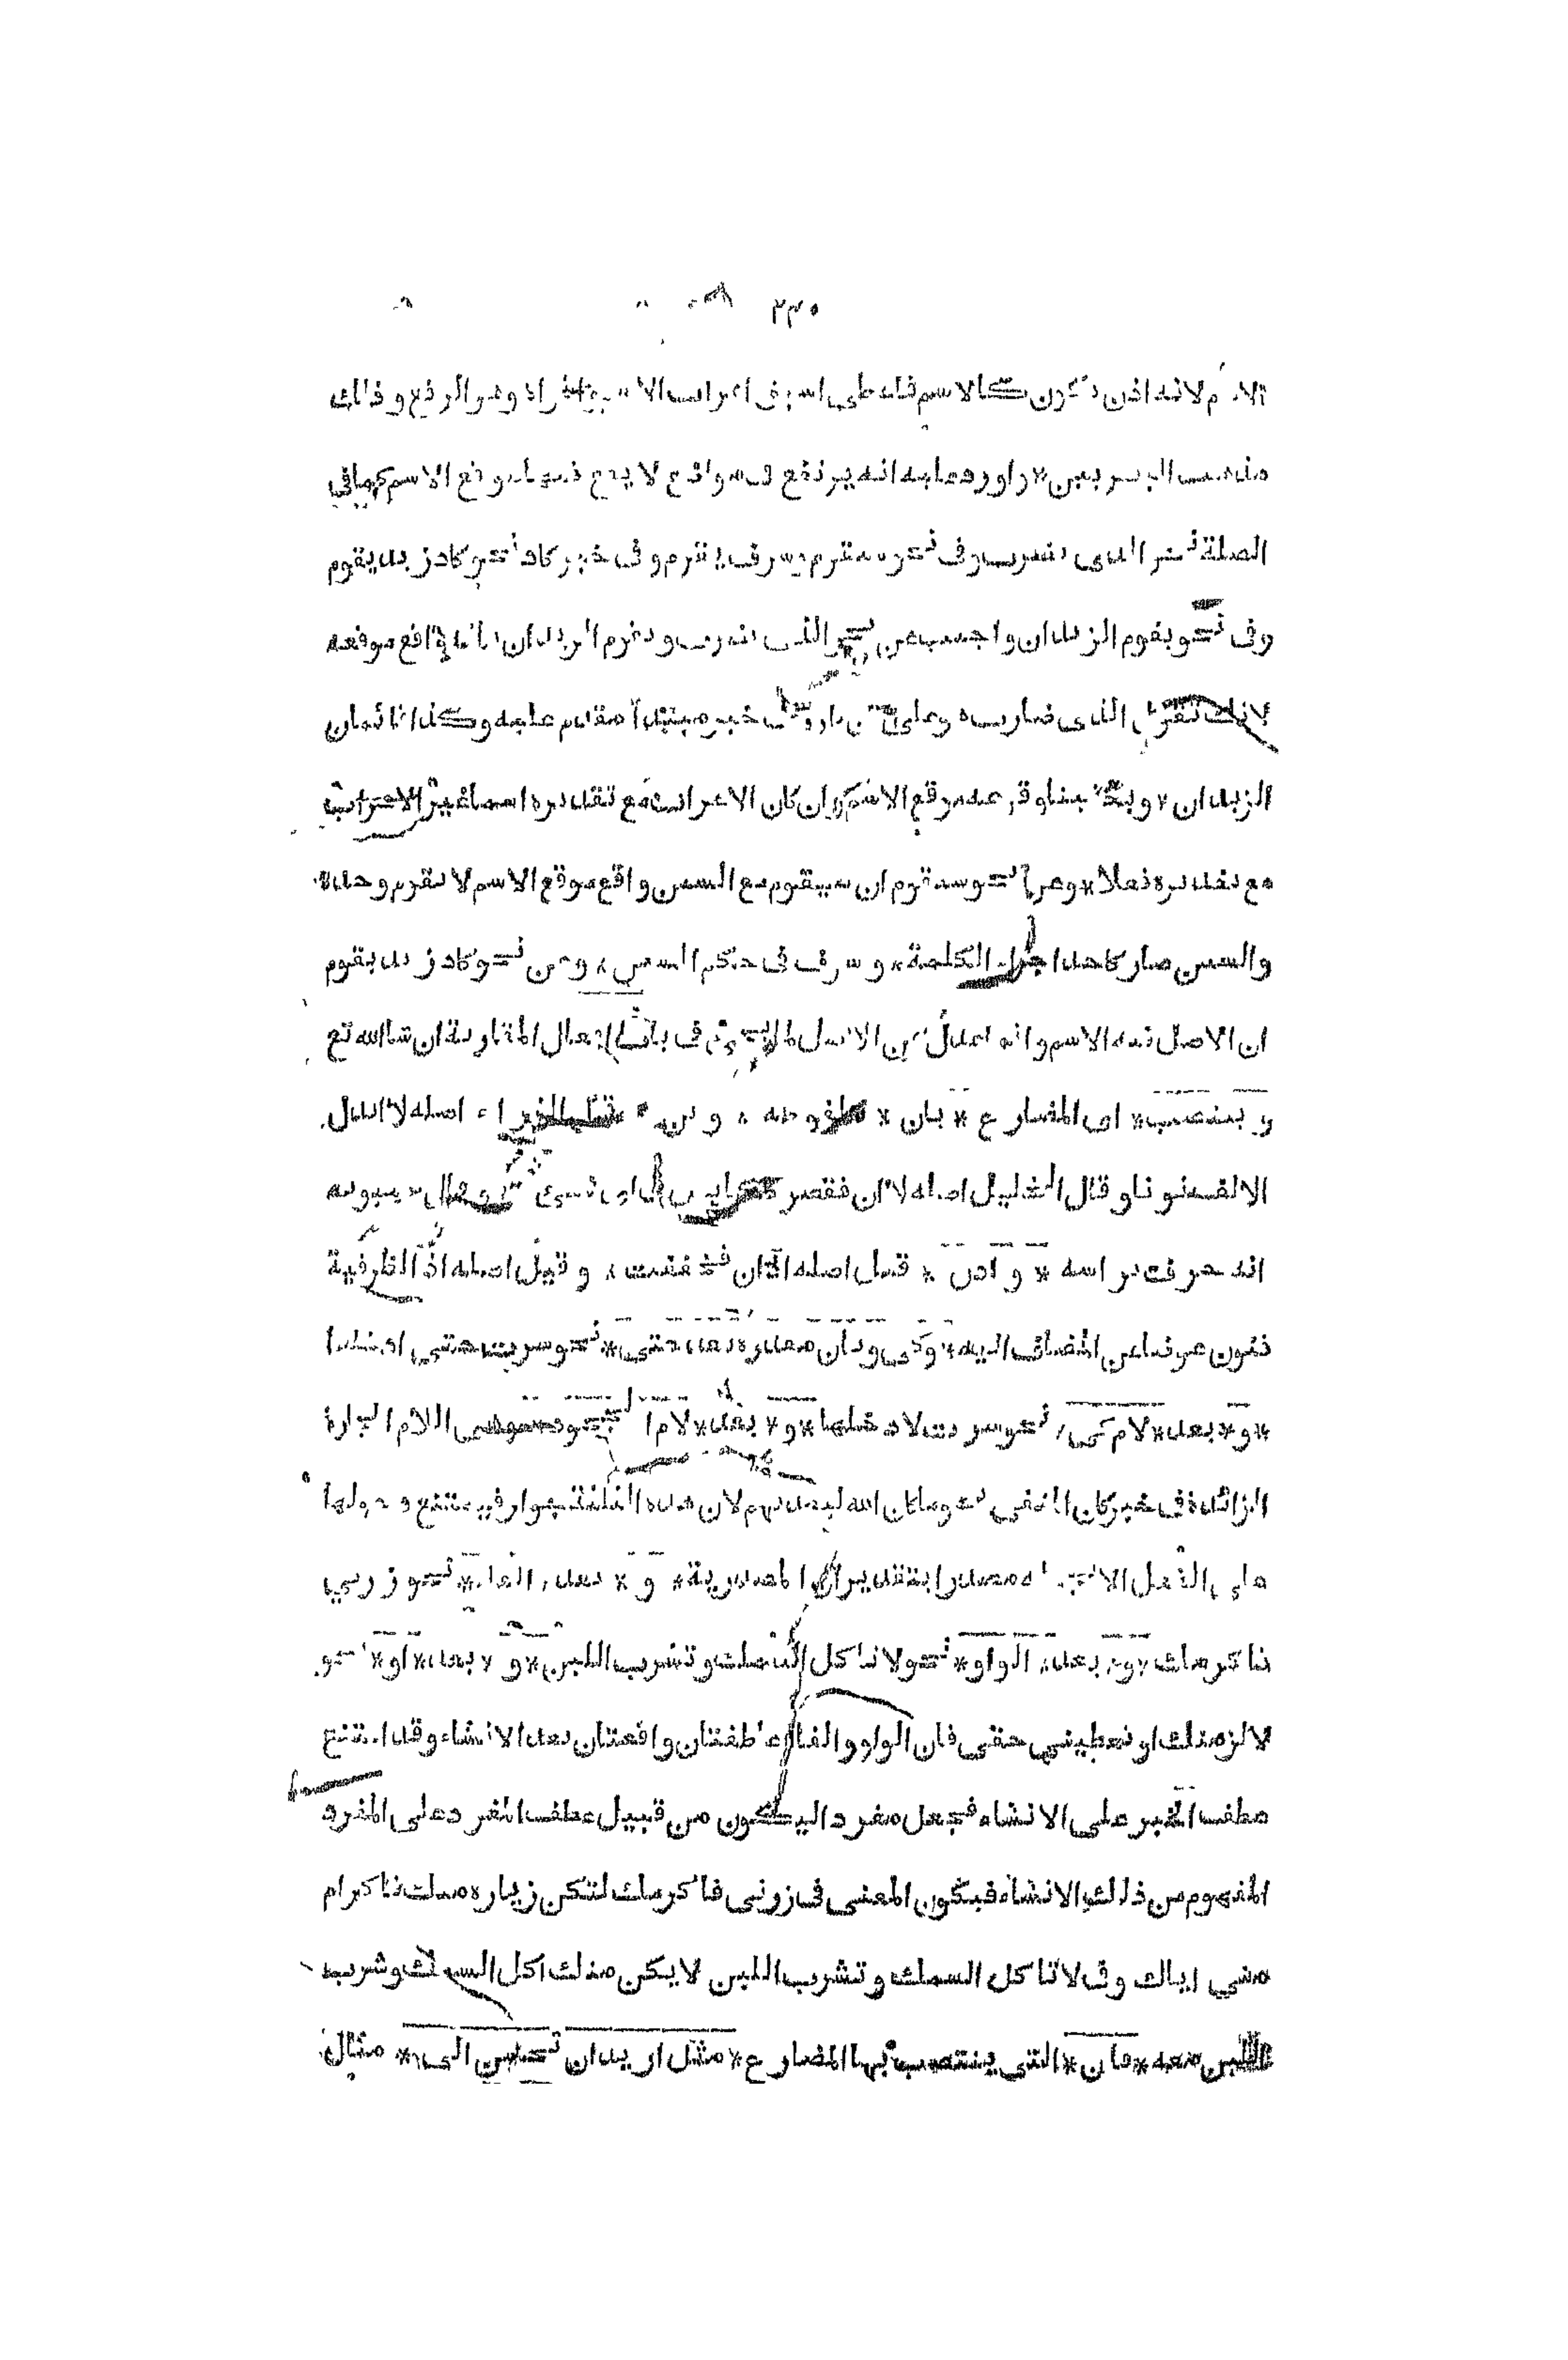 ٢٣٠
لانه اذن كالاسم فاعطى اسبق اعراب الاسم واقواه وهو الرفع وذلك
مذهب البصريين * واورد عليه انه يرتفع فى مواضع لا يقع فيها موقع الاسم كما فى
الصلة نحو الذى يضرب وفى نحو سيقوم وسوف يقوم وفى خبر كاد نحو كاد زيد يقوم
وفى نحو يقوم الزيدان واجيب عن نحو الذى يضرب ويقوم الزيدان بانه واقع موقعه
لانك تقول الذى ضارب هو على ان ضارب خبر مبتدأ مقدم عليه وكذا قائمان
الزيدان * ويكفينا وقوعه موقع الاسم وان كان الاعراب مع تقديره اسما غير الاعراب
مع تقديره فعلا * وعن نحو سيقوم ان سيقوم مع السين واقع موقع الاسم لا يقوم وحده
والسين صار كاحد اجزاء الكلمة * وسوف فى حكم السين * وعن نحو كاد زيد يقوم
ان الاصل فيه الاسم وانما عدل عن الاصل لما يجئ فى باب افعال المقاربة ان شاالله تع
وينتصب * اى المضارع * بان * ملفوظة * ولن * اصله لا ابدل
الالف نونا وقال الخليل اصله لا ان فقصر كايش فى اى شئ وقال سيبويه
انه حرف براسه * واذن * قيل اصله اذ ان فخففت * وقيل اصله اذ الظرفية
فنون عوضا عن المضاف اليه * وكى وبان مقدرة بعد حتى * نحو سرت حتى ادخلها
* و * بعد * لام كى * نحو سرت لادخلها * و * بعد * لام الجحود * وهى اللام الجارة
الزائدة فى خبر كان المنفى نحو وما كان الله ليعذبهم لان هذه الثلثة جوار فيمتنع دخولها
على الفعل الا بجعله مصدرا بتقدير ان المصدرية * و * بعد * الفاء * نحو زرنى
فاكرمك * و * بعد * الواو * نحو لا تاكل السمك وتشرب اللبن * و * بعد * او * نحو
لالزمنك او تعطينى حقى فان الواو والفاء عاطفتان واقعتان بعد الانشاء وقد امتنع
عطف الخبر على الانشاء فجعل مفردا ليكون من قبيل عطف المفرد على المفرد
المفهوم من ذلك الانشاء فيكون المعنى فى زرنى فاكرمك لتكن زيارة منك فاكرام
منى اياك وفى لا تاكل السمك وتشرب اللبن لا يكن منك اكل السمك وشرب
اللبن معه * فان * التى ينتصب بها المضارع * مثل اريد ان تحسن الى * مثال